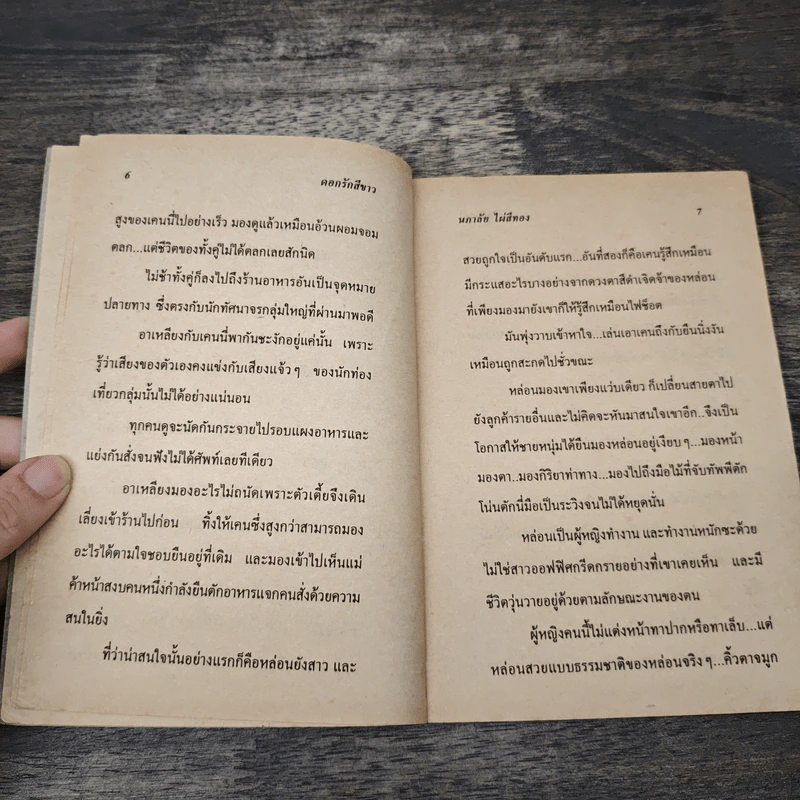 6
ดอกรักสีขาว
สูงของเคนนี่ไปอย่างเร็ว มองดูแล้วเหมือนอ้วนผอมจอม
ตลก...แต่ชีวิตของทั้งคู่ไม่ได้ตลกเลยสักนิด
ไม่ช้าทั้งคู่ก็ลงไปถึงร้านอาหารอันเป็นจุดหมาย
ปลายทาง ซึ่งตรงกับนักทัศนาจรกลุ่มใหญ่ที่ผ่านมาพอดี
อาเหลียงกับเคนนี่พากันชะงักอยู่แค่นั้น เพราะ
รู้ว่าเสียงของตัวเองคงแข่งกับเสียงแจ้วๆ ของนักท่อง
เที่ยวกลุ่มนั้นไม่ได้อย่างแน่นอน
ทุกคนดูจะนัดกันกระจายไปรอบแผงอาหารและ
แย่งกันสั่งจนฟังไม่ได้ศัพท์เลยทีเดียว
อาเหลียงมองอะไรไม่ถนัดเพราะตัวเตี้ยจึงเดิน
เลี่ยงเข้าร้านไปก่อน ทิ้งให้เคนซึ่งสูงกว่าสามารถมอง
อะไรได้ตามใจชอบยืนอยู่ที่เดิม และมองเข้าไปเห็นแม่
ค้าหน้าสงบคนหนึ่งกำลังยืนตักอาหารแจกคนสั่งด้วยความ
สนในยิ่ง
ที่ว่าน่าสนใจนั้นอย่างแรกก็คือหล่อนยังสาว และ
นภาลัย ไผ่สีทอง
7
สวยถูกใจเป็นอันดับแรก...อันที่สองก็คือเคนรู้สึกเหมือน
มีกระแสอะไรบางอย่างจากดวงตาสีดำเจิดจ้าของหล่อน
ที่เพียงมองมายังเขาก็ให้รู้สึกเหมือนไฟช็อต
มันพุ่งวาบเข้าหาใจ...เล่นเอาเคนถึงกับยืนนิ่งงัน
เหมือนถูกสะกดไปชั่วขณะ
หล่อนมองเขาเพียงแว่บเดียว ก็เปลี่ยนสายตาไป
ยังลูกค้ารายอื่นและไม่คิดจะหันมาสนใจเขาอีก..จึงเป็น
โอกาสให้ชายหนุ่มได้ยืนมองหล่อนอยู่เงียบๆ...มองหน้า
มองตา..มองกิริยาท่าทาง...มองไปถึงมือไม้ที่จับทัพพีตัก
โน่นตักนี่มือเป็นระวิงจนไม่ได้หยุดนั่น
หล่อนเป็นผู้หญิงทำงาน และทำงานหนักซะด้วย
ไม่ใช่สาวออฟฟิศกรีดกรายอย่างที่เขาเคยเห็น และมี
ชีวิตวุ่นวายอยู่ด้วยตามลักษณะงานของตน
ผู้หญิงคนนี้ไม่แต่งหน้าทาปากหรือทาเล็บ...แต่
หล่อนสวยแบบธรรมชาติของหล่อนจริงๆ...คิ้วตาจมูก